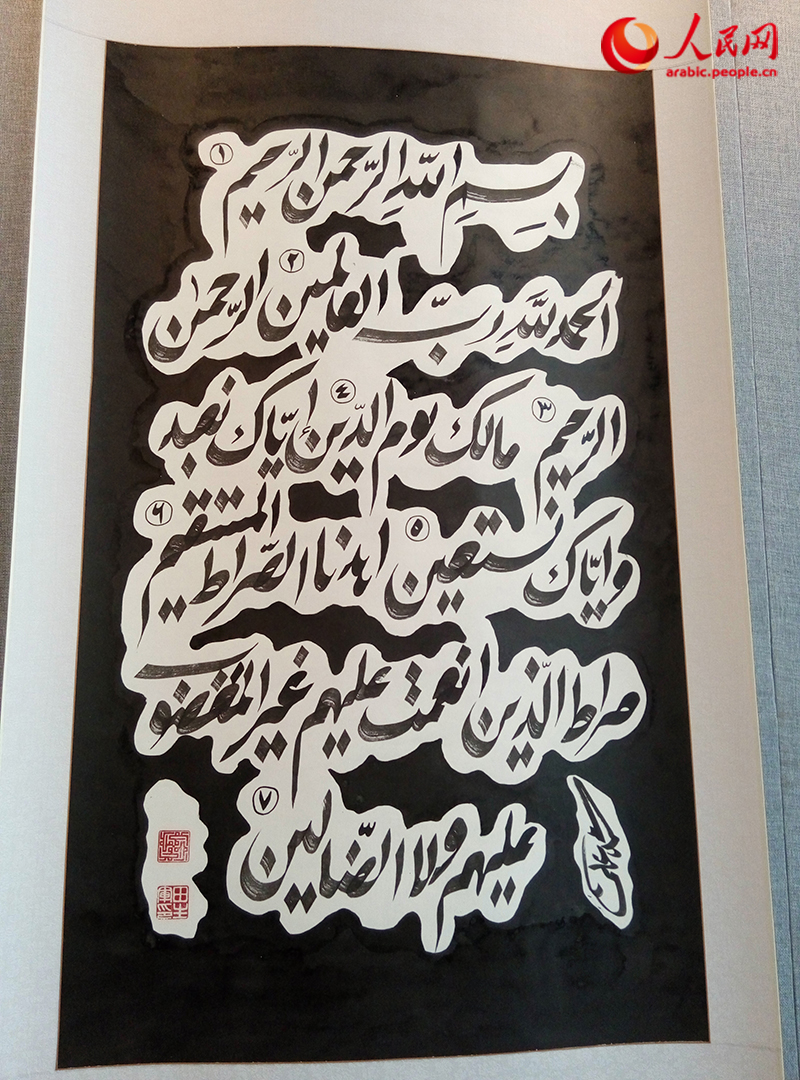 人民网
arabic.people.cn
بِسْمِ اللّٰهِ الرَّحمن الرَّحيم ١
الحمد لِلَّهِ رَبِّ العالمين ٢ الرَّحمن
الرَّحيم ٣ مالك يوم الدّين ٤ إيّاك نعبد
وايّاك نستعين ٥ اهدنا الصّراط المستقيم ۶
صراط الّذين انعمت عليهم غير المغضوب
عليهم ولا الضّالين ٧